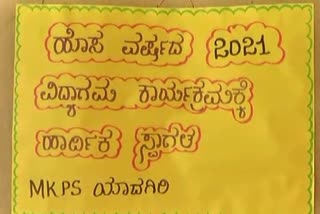 ಹೊಸ ವರ್ಷದ 2021
ವಿದ್ಯಾಗಮ ಕಾರ್ಯಕ್ರಮಕ್ಕೆ
ಹಾರ್ದಿಕ ಸ್ವಾಗತ
MKPS ಯಾದಗಿರಿ